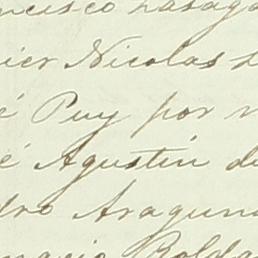 ncisco
ier Nicolas
é Puy por
é Agustín de
dro Aragun
nacio Rolda